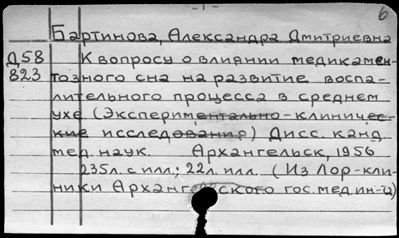 - 1 -
6
Бартинова, Александра Дмитриевна
Д58 К вопросу о влиянии медикамен-
823 тозного сна на развитие воспа-
лительного процесса в среднем
ухе (Экспериментально-клиничес-
кие исследования) Дисс. канд
мед. наук. Архангельск, 1956
235л. с илл.; 22л. илл. (Из Лор-кли-
ники Архангельского гос. мед. ин-та)